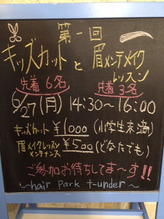 第一回
キッズカットと眉メンテメイク
レッスン
先着6名 先着3名
6/27(月) 14:30〜16:00
キッズカット ¥1000(小学生未満)
眉メイクレッスン ¥500(どなたでも)
メンテナンス
ご参加お待ちしてま〜す!!
〜hair Park t-under〜